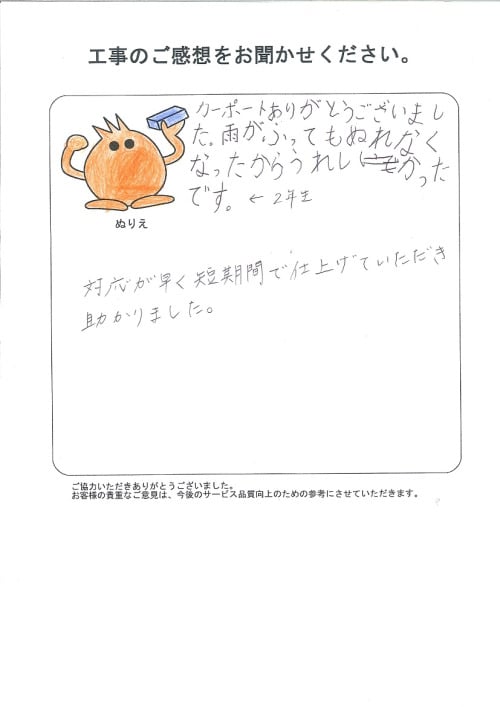 工事のご感想をお聞かせください。
カーポートありがとうございまし
た。雨がふってもぬれなく
なったからうれしかった
です。← 2年生
ぬりえ
対応が早く短期間で仕上げていただき
助かりました。
ご協力いただきありがとうございました。
お客様の貴重なご意見は、今後のサービス品質向上のための参考にさせていただきます。